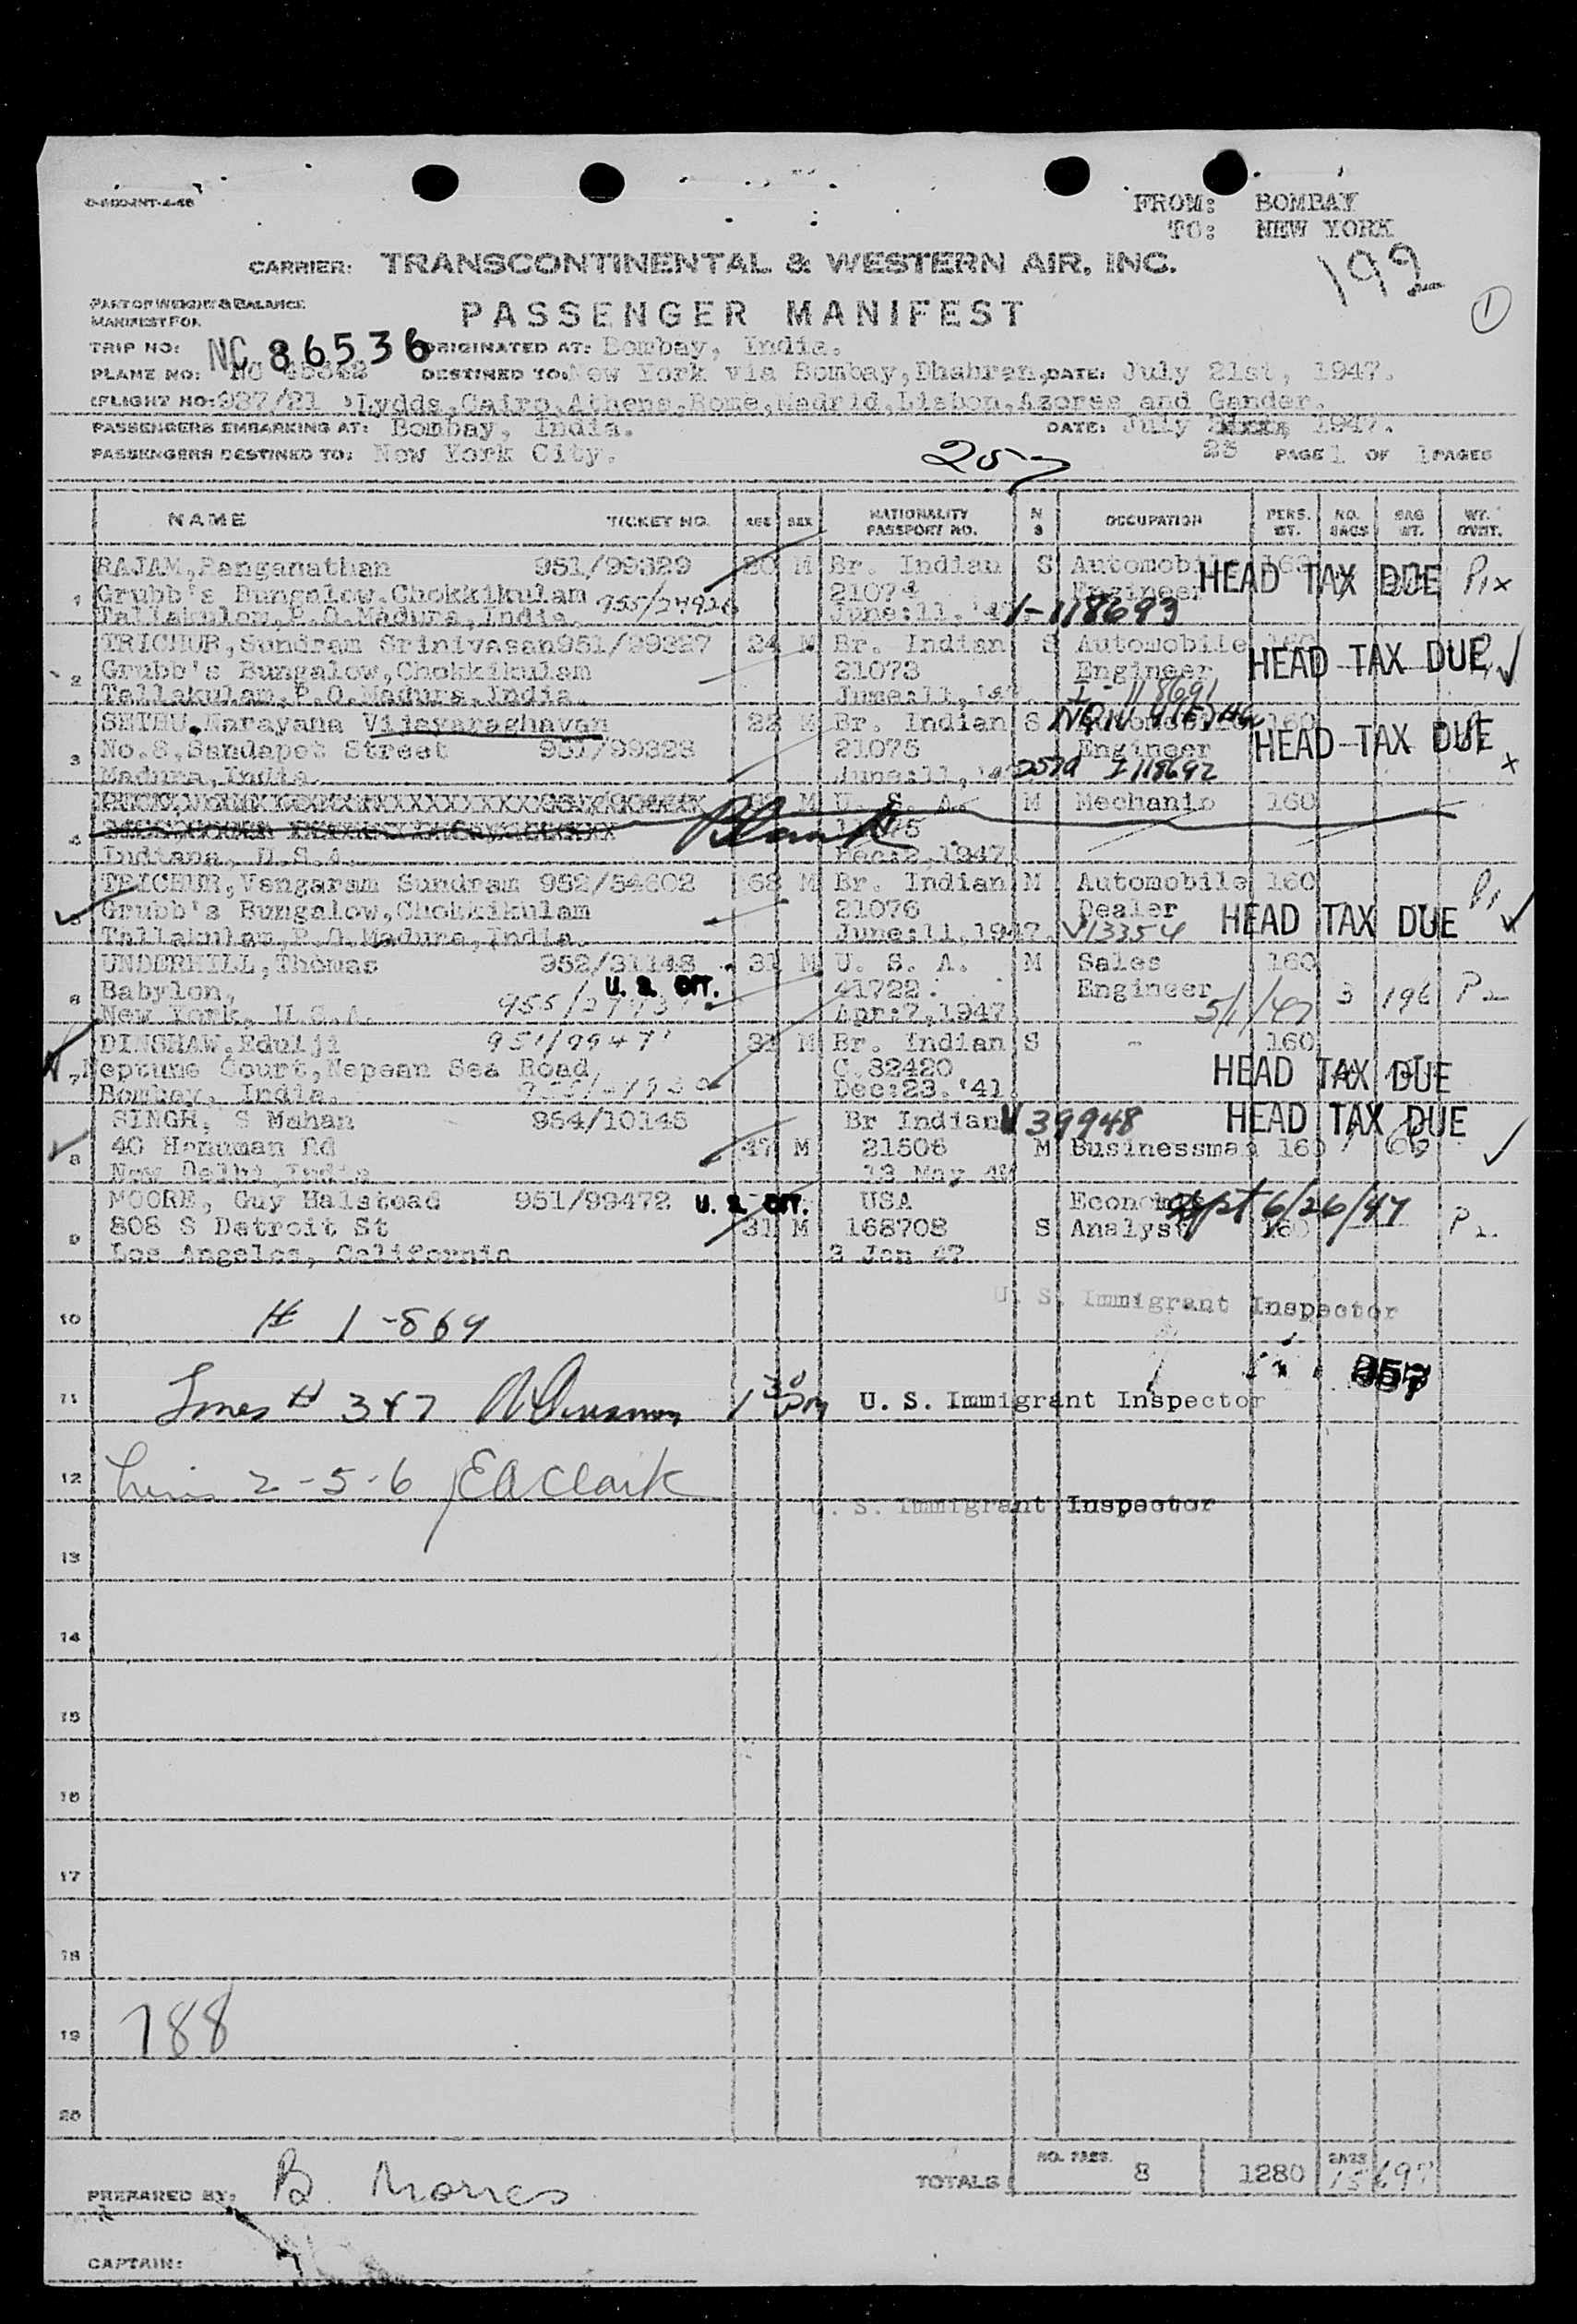 FROM: BOMBAY
TO: NEW YORK
CARRIER: TRANSCONTINENTAL & WESTERN AIR, INC.
192
PART OF WEIGHT & BALANCE
MANIFEST FOR
PASSENGER MANIFEST
1
TRIP NO: NC 86536 ORIGINATED AT: Bombay, India.
PLANE NO: NC DESTINED TO: New York via Bombay, Dhahran, DATE: July 21st, 1947.
FLIGHT NO: 937/21 Lydda, Cairo, Athens, Rome, Madrid, Lisbon, Azores and Gander.
PASSENGERS EMBARKING AT: Bombay, India. DATE: July 1947.
PASSENGERS DESTINED TO: New York City. 257 23 PAGE 1 OF 1 PAGES
NAME TICKET NO. AGE SEX NATIONALITY PASSPORT NO. N S OCCUPATION PERS. WT. NO. BAGS BAG WT. WT. OVWT.
1 RAJAM, Ranganathan 951/99329 M Br. Indian S Automobile 160
Grubb's Bungalow, Chokkikulam 21074 Engineer HEAD TAX DUE
Tallakulam, P.O. Madura, India. June:11, I-118693
TRICHUR, Sundram Srinivasan 951/99327 24 M Br. Indian S Automobile 160
2 Grubb's Bungalow, Chokkikulam 21073 Engineer HEAD TAX DUE
Tallakulam, P.O. Madura, India. June:11, I-118691
SETHU, Narayana Vijayaraghavan 22 M Br. Indian S 160
3 No.8, Sandapet Street 951/99328 21075 Engineer HEAD TAX DUE
Madura, India. June:11, I 118692
M U. S. A. M Mechanic 160
4 Blank
Indiana, U.S.A. Dec:2, 1947.
TRICHUR, Vengaram Sundram 952/54602 62 M Br. Indian M Automobile 160
5 Grubb's Bungalow, Chokkikulam 21076 Dealer HEAD TAX DUE
Tallakulam, P.O. Madura, India. June:11, 1947. V13354
UNDERHILL, Thomas 952/31148 31 M U. S. A. M Sales 160
6 Babylon, U. S. CIT. 41722 Engineer 3 196
New York, U.S.A. Apr:7, 1947. 5/1/47
DINSHAW, Edulji M Br. Indian S - 160
7 Neptune Court, Nepean Sea Road, C.82420 HEAD TAX DUE
Bombay, India. Dec:23, '41.
SINGH, S Mahan 954/10145 Br Indian V 39948 HEAD TAX DUE
8 40 Hanuman Rd 47 M 21506 M Businessman 160
New Delhi, India 13 May
MOORE, Guy Halstead 951/99472 U. S. CIT. USA Economic 6/26/47
9 808 S Detroit St 31 M 168708 S Analyst 160
Los Angeles, California 3 Jan 47
U. S. Immigrant Inspector
10 # 1-869
11 Lines # 3 & 7 1 30 PM U. S. Immigrant Inspector
12 2-5-6 E A Clark
U. S. Immigrant Inspector
13
14
15
16
17
18
19 188
20
TOTALS NO. PASS. 8 1280 BAGS 15 697
PREPARED BY:
CAPTAIN: